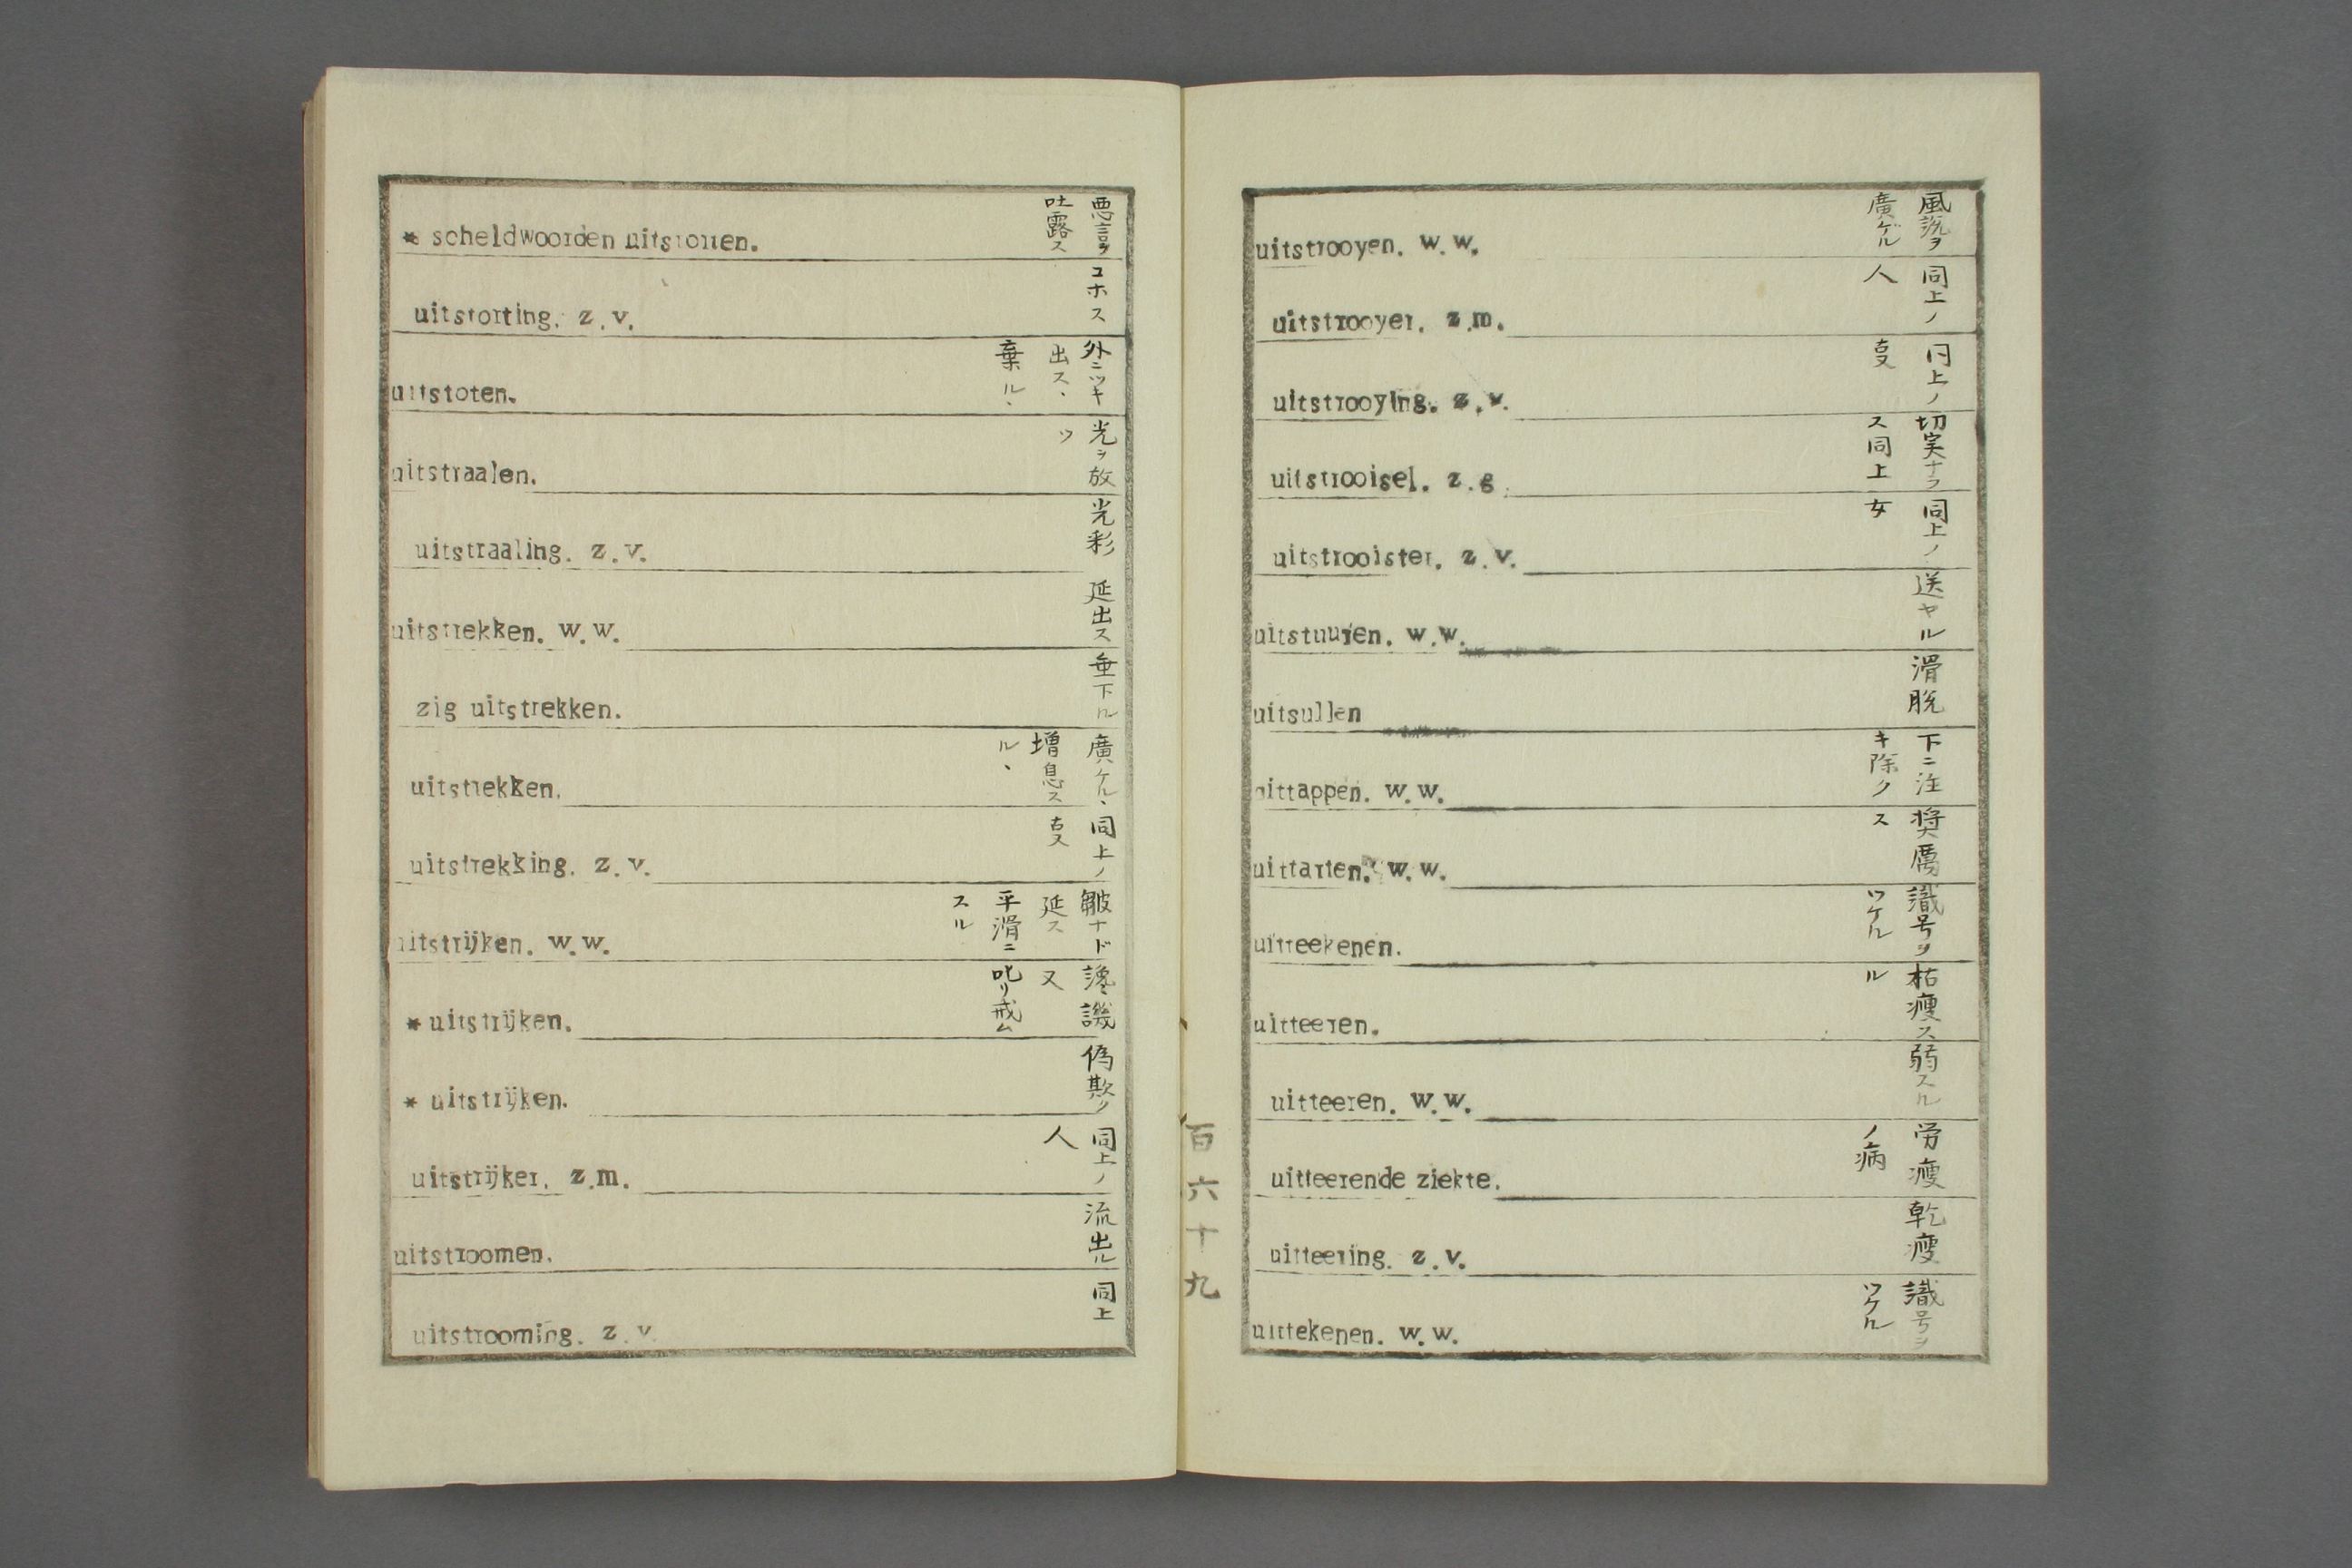 * scheldwoorden uitstorten.
悪言ヲ
吐露ス
uitstorting. z.v.
コホス
uitstoten.
外ニツキ
出ス、
棄ル、
uitstraalen.
光ヲ放
ツ
uitstraaling. z.v.
光彩
uitstrekken. w.w.
延出ス
zig uitstrekken.
垂下ル
uitstrekken.
廣ケル、
増息ス
ル、
uitstrekking. z.v.
同上ノ
叓
uitstrijken. w.w.
皺ナド
延ス
平滑ニ
スル
* uitstrijken.
讒譏
又
叱リ戒ム
* uitstrijken.
偽欺ク
uitstrijker. z.m.
同上ノ
人
uitstroomen.
流出ル
uitstrooming. z.v.
同上
百六十九
uitstrooyen. w.w.
風説ヲ
廣ゲル
uitstrooyer. z.m.
同上ノ
人
uitstrooying. z.v.
同上ノ
叓
uitstrooisel. z.g.
切実ナラ
ス同上
uitstrooister. z.v.
同上ノ
女
uitstuuren. w.w.
送ヤル
uitsullen
滑脱
uittappen. w.w.
下ニ注
キ除ク
uittarten. w.w.
奨厲
ス
uitteekenen.
識号ヲ
ツケル
uitteeren.
枯痩ス
ル
uitteeren. w.w.
弱スル
uitteerende ziekte.
労痩
ノ病
uitteering. z.v.
乾痩
uittekenen. w.w.
識号ヲ
ツケル